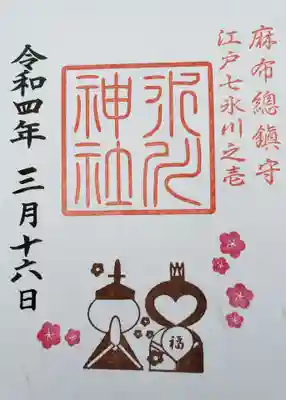 麻布總鎮守
江戸七氷川之壱
氷川
神社
令和四年 三月十六日
福